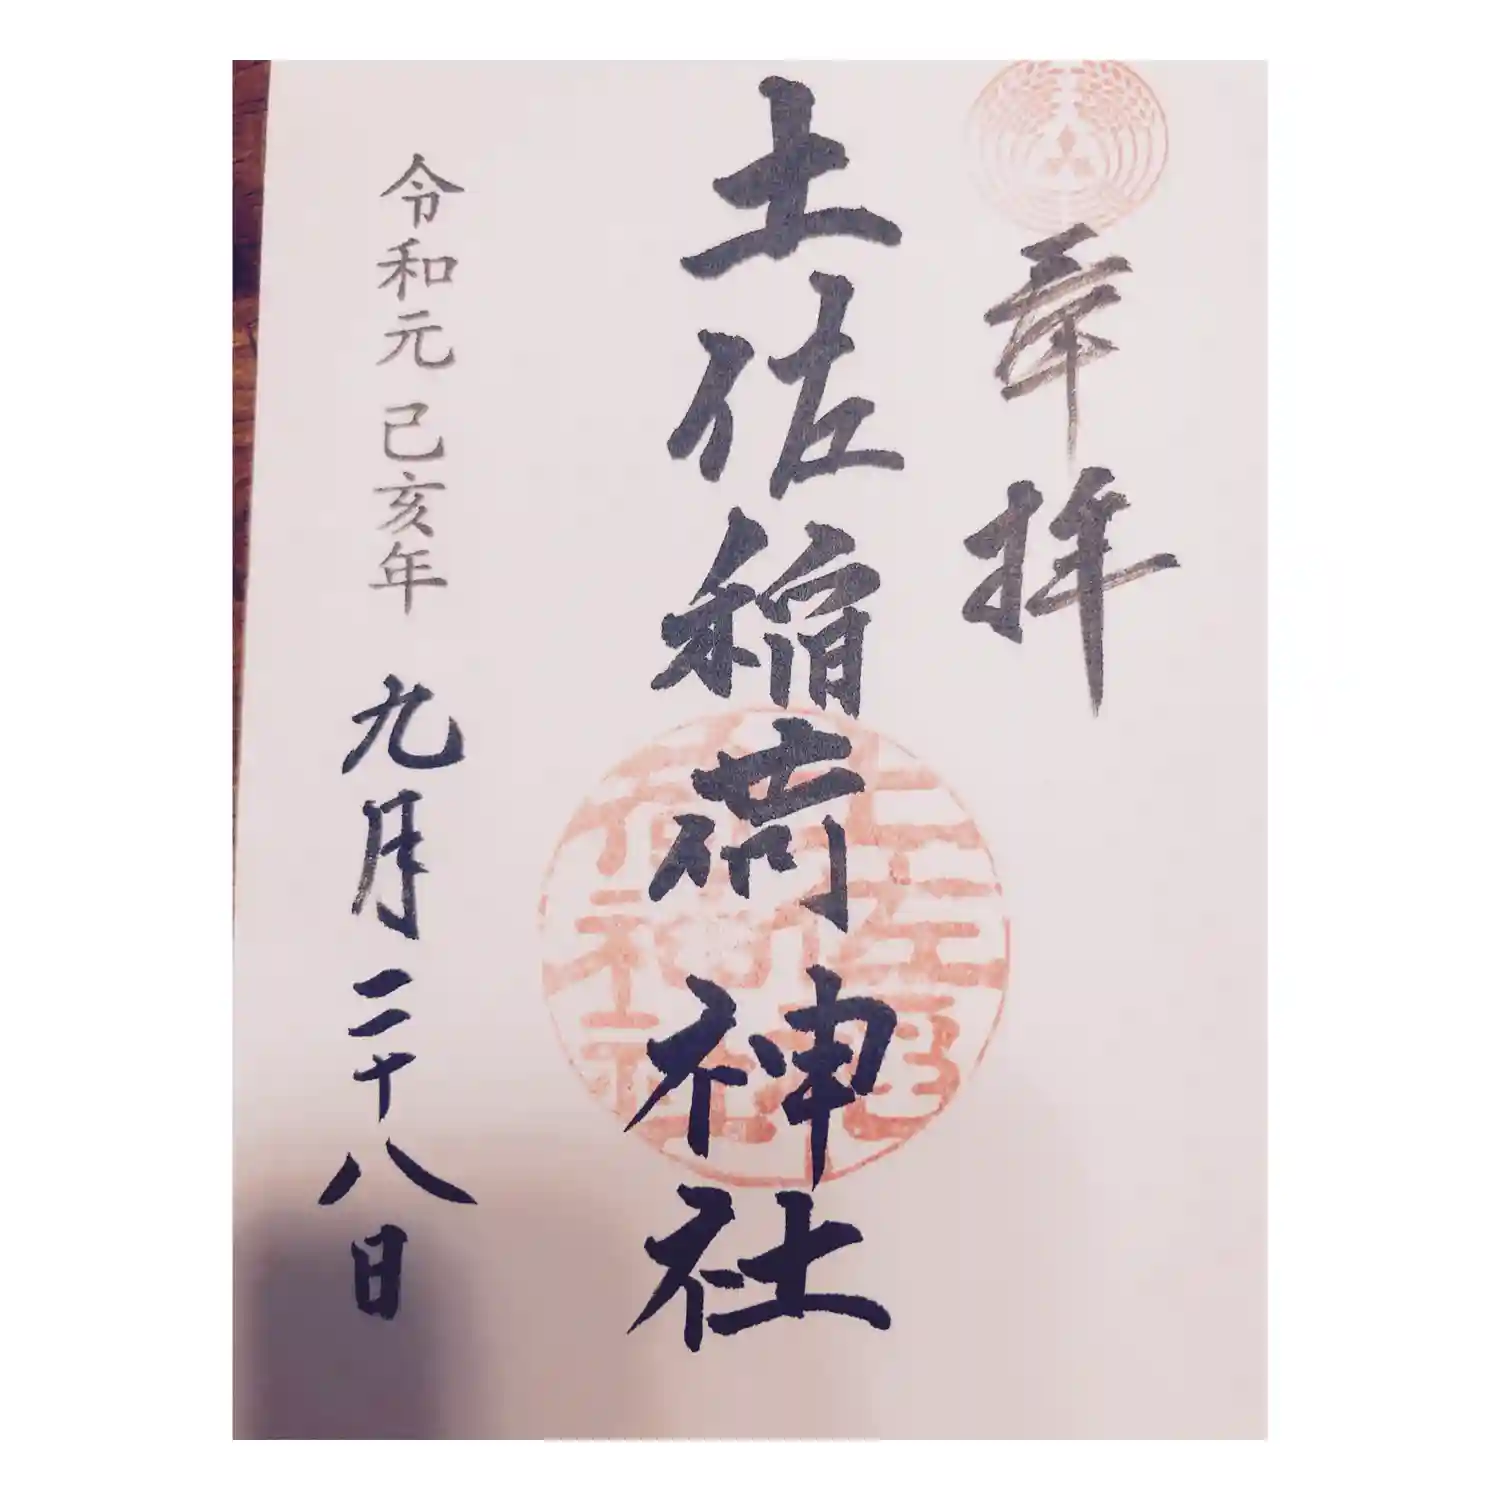 奉拝
土佐稲荷神社
令和元己亥年九月二十八日
土佐稲荷神社